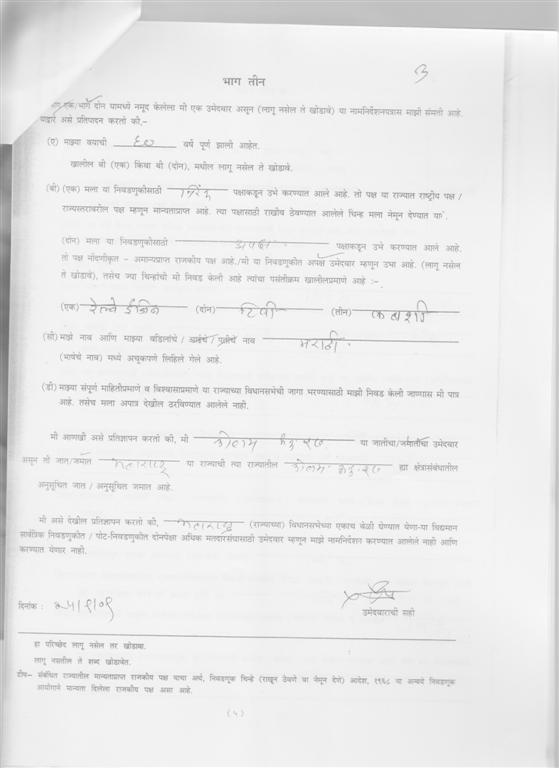 3
भाग तीन
भाग एक/भाग दोन यामध्ये नमूद केलेला मी एक उमेदवार असून (लागू नसेल ते खोडावे) या नामनिर्देशनपत्रास माझी संमती आहे.
याद्वारे असे प्रतिपादन करतो की,-
(ए) माझ्या वयाची ६० वर्षे पूर्ण झाली आहेत.
खालील बी (एक) किंवा बी (दोन), मधील लागू नसेल ते खोडावे.
(बी) (एक) मला या निवडणुकीसाठी पक्षाकडून उभे करण्यात आले आहे. तो पक्ष या राज्यात राष्ट्रीय पक्ष /
राज्यस्तरावरील पक्ष म्हणून मान्यताप्राप्त आहे. त्या पक्षासाठी राखीव ठेवण्यात आलेले चिन्ह मला नेमून देण्यात या
(दोन) मला या निवडणुकीसाठी अपक्ष पक्षाकडून उभे करण्यात आले आहे.
तो पक्ष नोंदणीकृत – अमान्यप्राप्त राजकीय पक्ष आहे./मी या निवडणुकीत अपक्ष उमेदवार म्हणून उभा आहे. (लागू नसेल
ते खोडावे), तसेच ज्या चिन्हांची मी निवड केली आहे त्यांचा पसंतीक्रम खालीलप्रमाणे आहे :-
(एक) रेल्वे इंजिन (दोन) टिव्ही (तीन) कपबशी
(सी) माझे नाव आणि माझ्या वडिलांचे / आईचे / पतीचे नाव मराठी
(भाषेचे नाव) मध्ये अचूकपणे लिहिले गेले आहे.
(डी) माझ्या संपूर्ण माहितीप्रमाणे व विश्वासाप्रमाणे या राज्याच्या विधानसभेची जागा भरण्यासाठी माझी निवड केली जाण्यास मी पात्र
आहे. तसेच मला अपात्र देखील ठरविण्यात आलेले नाही.
मी आणखी असे प्रतिज्ञापन करतो की, मी या जातीचा/जमातीचा उमेदवार
असून ती जात/जमात महाराष्ट्र या राज्याची त्या राज्यातील ह्या क्षेत्रासंबंधातील
अनुसूचित जात / अनुसूचित जमात आहे.
मी असे देखील प्रतिज्ञापन करतो की, महाराष्ट्र (राज्याच्या) विधानसभेच्या एकाच वेळी घेण्यात येणा-या विद्यमान
सार्वत्रिक निवडणुकीत / पोट-निवडणुकीत दोनपेक्षा अधिक मतदारसंघासाठी उमेदवार म्हणून माझे नामनिर्देशन करण्यात आलेले नाही आणि
करण्यात येणार नाही.
दिनांक : २५/९/०९
उमेदवाराची सही
हा परिच्छेद लागू नसेल तर खोडावा.
लागू नसतील ते शब्द खोडावेत.
टीप– संबंधित राज्यातील मान्यताप्राप्त राजकीय पक्ष याचा अर्थ, निवडणूक चिन्हे (राखून ठेवणे वा नेमून देणे) आदेश, १९६८ या अन्वये निवडणूक
आयोगाने मान्यता दिलेला राजकीय पक्ष असा आहे.
(५)